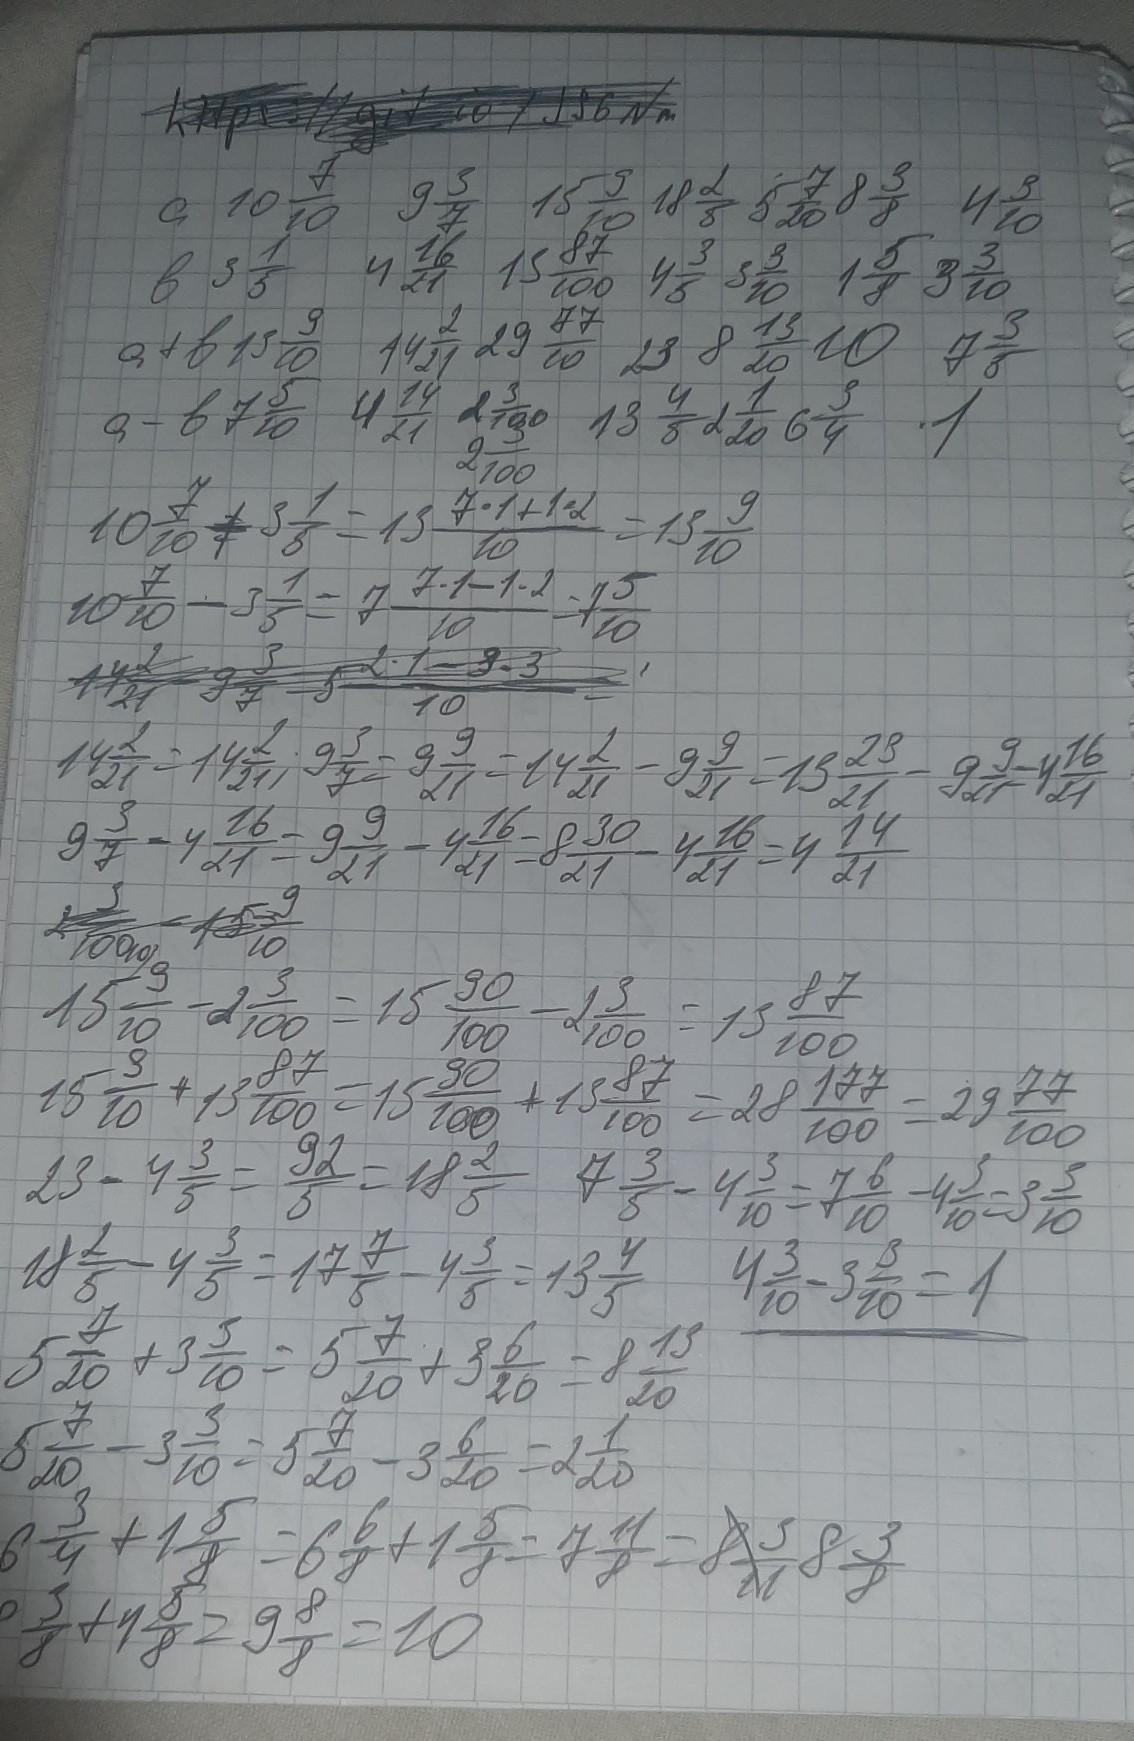 a 10 7/10 9 3/7 15 9/10 18 2/5 5 7/20 8 3/8 4 3/10
b 3 1/5 4 16/21 13 87/100 4 3/5 3 3/10 1 5/8 3 3/10
a+b 13 9/10 14 2/21 29 77/10 23 8 13/20 10 7 3/5
a-b 7 5/10 4 14/21 2 3/100 13 4/5 2 1/20 6 3/4 1
2 3/100
10 7/10 + 3 1/5 = 13 (7·1+1·2)/10 = 13 9/10
10 7/10 - 3 1/5 = 7 (7·1-1·2)/10 = 7 5/10
14 2/21 - 9 3/7 = 5 (2·1-3·3)/10 =
14 2/21 = 14 2/21; 9 3/7 = 9 9/21 = 14 2/21 - 9 9/21 = 13 23/21 - 9 9/21 = 4 16/21
9 3/7 - 4 16/21 = 9 9/21 - 4 16/21 = 8 30/21 - 4 16/21 = 4 14/21
2 3/100 - 15 9/10
15 9/10 - 2 3/100 = 15 90/100 - 2 3/100 = 13 87/100
15 9/10 + 13 87/100 = 15 90/100 + 13 87/100 = 28 177/100 = 29 77/100
23 - 4 3/5 = 92/5 = 18 2/5 7 3/5 - 4 3/10 = 7 6/10 - 4 3/10 = 3 3/10
18 2/5 - 4 3/5 = 17 7/5 - 4 3/5 = 13 4/5 4 3/10 - 3 3/10 = 1
5 7/20 + 3 3/10 = 5 7/20 + 3 6/20 = 8 13/20
5 7/20 - 3 3/10 = 5 7/20 - 3 6/20 = 2 1/20
6 3/4 + 1 5/8 = 6 6/8 + 1 5/8 = 7 11/8 = 8 3/11 8 3/8
3/8 + 1 5/8 = 9 8/8 = 10